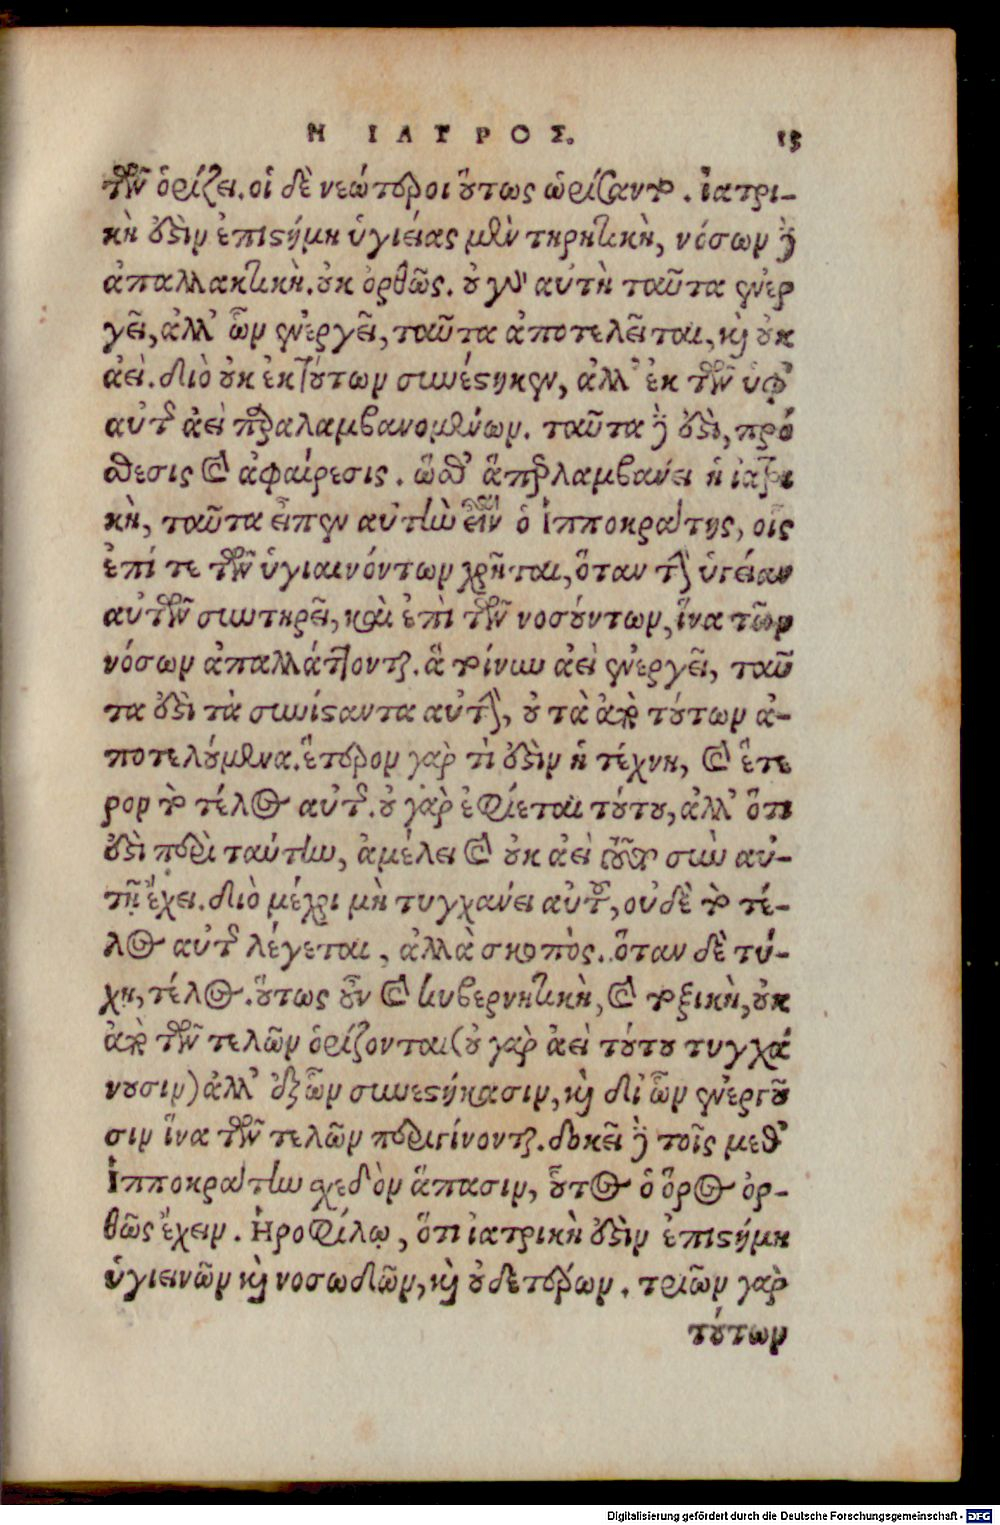 Η ΙΑΤΡΟΣ. 15
τῶν ὁρίζει. οἱ δὲ νεώτεροι ὅυτως ὡρίσαντο. ἰατρι-
κὴ ὅ8ξὶν ἐπιστήμη ὑγιείας μὲν τηρητικὴ, νόσων δὲ
ἀπαλλακτικὴ. οὐκ ὀρθῶς. οὐ γὰρ αὐτὴ ταῦτα ἐνερ
γεῖ, ἀλλ' ὧν ἐνεργεῖ, ταῦτα ἀποτελεῖται, καὶ οὐκ
ἀεὶ. διὸ οὐκ ἐκ τούτων συνέστηκεν, ἀλλ' ἐκ τῶν ὑφ'
αὐτῆς ἀεὶ παραλαμβανομένων. ταῦτα δὲ ἐστὶ, πρό
σθεσις καὶ ἀφαίρεσις. ὥσθ' ἃ παραλαμβάνει ἡ ἰατρι
κὴ, ταῦτα εἶπεν αὐτὴν εἶναι ὁ Ἱπποκράτης, οἷς
ἐπί τε τῶν ὑγιαινόντων χρῆται, ὅταν τὴν ὑγείαν
αὐτῶν συντηρεῖ, καὶ ἐπὶ τῶν νοσούντων, ἵνα τῶν
νόσων ἀπαλλάττονται. ἃ τοίνυν ἀεὶ ἐνεργεῖ, ταῦ
τα ἐστὶ τὰ συνίσταντα αὐτὴν, οὐ τὰ ἀπὸ τούτων ἀ-
ποτελούμενα. ἕτερον γὰρ τὶ ἐστὶν ἡ τέχνη, καὶ ἕτε
ρον τὸ τέλος αὐτῆς. οὐ γὰρ ἐφίεται τούτου, ἀλλ' ὅτι
ἐστὶ περὶ ταύτην, ἀμέλει καὶ οὐκ ἀεὶ τοῦτο σὺν αὐ-
τῇ ἔχει. διὸ μέχρι μὴ τυγχάνει αὐτοῦ, οὐδὲ τὸ τέ-
λος αὐτῆς λέγεται, ἀλλὰ σκοπὸς. ὅταν δὲ τύ-
χῃ, τέλος. οὕτως οὖν καὶ κυβερνητικὴ, καὶ τοξικὴ, οὐκ
ἀπὸ τῶν τελῶν ὁρίζονται (οὐ γὰρ ἀεὶ τούτου τυγχά
νουσιν) ἀλλ' ἐξ ὧν συνεστήκασιν, καὶ δι' ὧν ἐνεργοῦ
σιν ἵνα τῶν τελῶν περιγίνονται. δοκεῖ δὲ τοῖς μεθ'
Ἱπποκράτην σχεδὸν ἅπασιν, οὗτος ὁ ὅρος ὀρ-
θῶς ἔχειν. Ἡροφίλῳ, ὅτι ἰατρικὴ ἐστὶν ἐπιστήμη
ὑγιεινῶν καὶ νοσωδῶν, καὶ οὐδετέρων. τριῶν γὰρ
τούτων
Digitalisierung gefördert durch die Deutsche Forschungsgemeinschaft - DFG